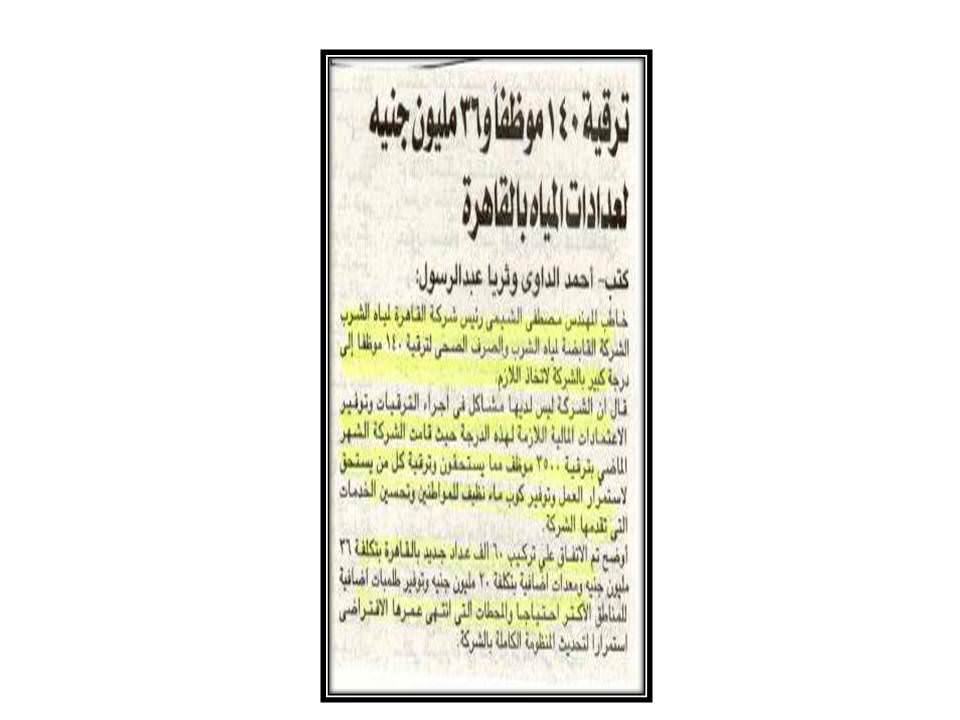 ترقية ١٤٠ موظفاً و٣٦ مليون جنيه
لعدادات المياه بالقاهرة
كتب- أحمد الداوى وثريا عبدالرسول:
خاطب المهندس مصطفى الشيمى رئيس شركة القاهرة لمياه الشرب
الشركة القابضة لمياه الشرب والصرف الصحى لترقية ١٤٠ موظفا إلى
درجة كبير بالشركة لاتخاذ اللازم.
قال ان الشركة ليس لديها مشاكل فى أجراء الترقيات وتوفير
الاعتمادات المالية اللازمة لهذه الدرجة حيث قامت الشركة الشهر
الماضي بترقية ٢٥٠٠ موظف مما يستحقون وترقية كل من يستحق
لاستمرار العمل وتوفير كوب ماء نظيف للمواطنين وتحسين الخدمات
التى تقدمها الشركة.
أوضح تم الاتفاق على تركيب ٦٠ ألف عداد جديد بالقاهرة بتكلفة ٣٦
مليون جنيه ومعدات اضافية بتكلفة ٢٠ مليون جنيه وتوفير طلمبات اضافية
للمناطق الأكثر احتياجا والمحطات التى انتهى عمرها الافتراضى
استمرارا لتحديث المنظومة الكاملة بالشركة.